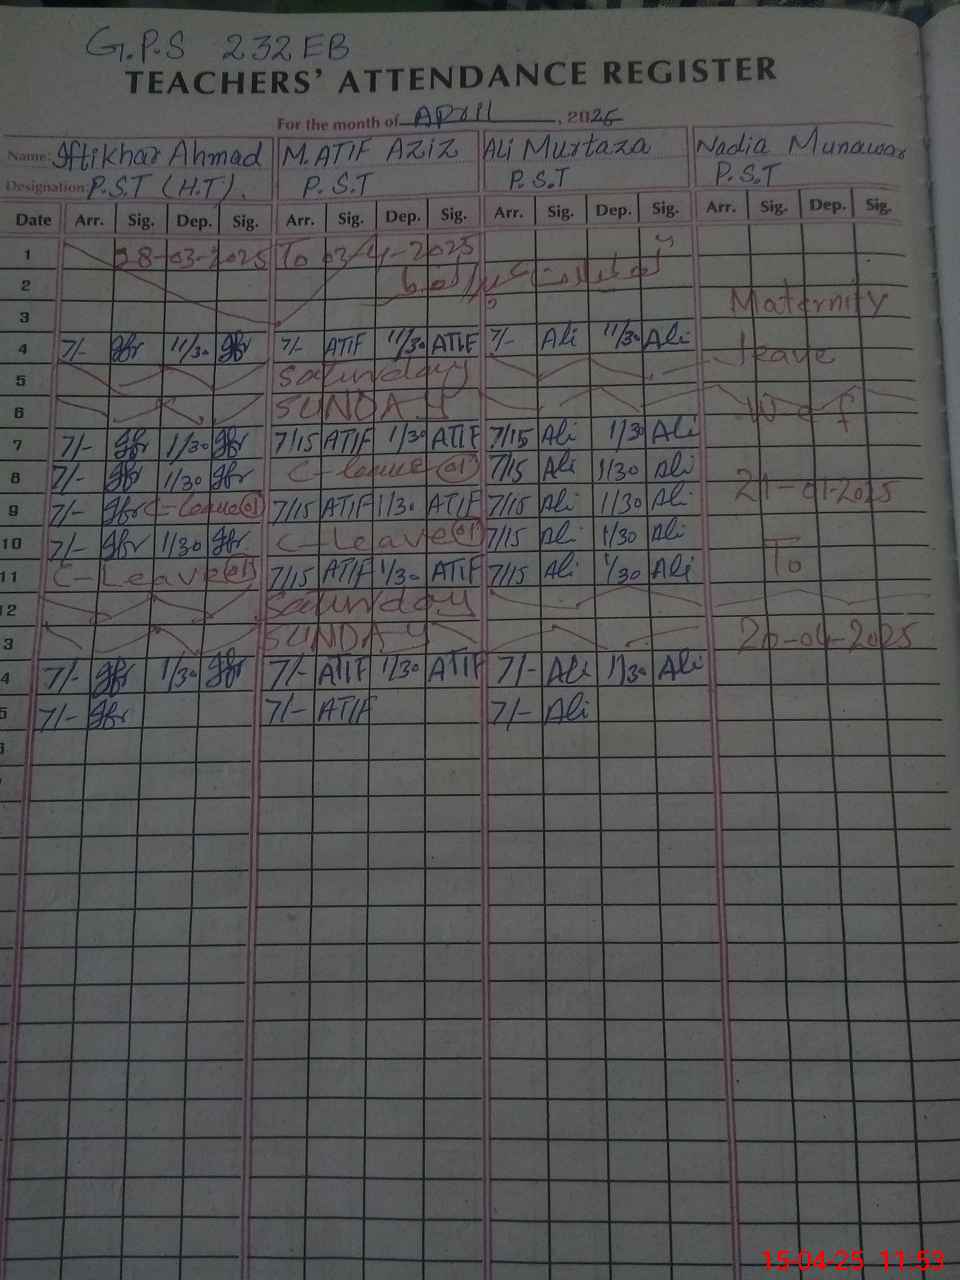 G.P.S 232EB
TEACHERS' ATTENDANCE REGISTER
For the month of April, 2025
Name: Iftikhar Ahmad M. ATIF AZIZ Ali Murtaza Nadia Munawar
Designation: P.S.T (H.T). P.S.T P.S.T P.S.T
Date Arr. Sig. Dep. Sig. Arr. Sig. Dep. Sig. Arr. Sig. Dep. Sig. Arr. Sig. Dep. Sig.
1 28-03-2025 To 03-4-2025
2 تعطیلات عیدالفطر
3 Maternity
4 7/- Ifr 11/30 Ifr 7/- ATIF 11/30 ATIF 7/- Ali 11/30 Ali leave
5 Saturday
6 SUNDAY W e f
7 7/- Ifr 1/30 Ifr 7/15 ATIF 1/30 ATIF 7/15 Ali 1/30 Ali
8 7/- Ifr 1/30 Ifr C-leave 01 7/15 Ali 1/30 Ali
9 7/- Ifr C-leave 01 7/15 ATIF 1/30 ATIF 7/15 Ali 1/30 Ali 21-01-2025
10 7/- Ifr 1/30 Ifr C-Leave 01 7/15 Ali 1/30 Ali
11 C-Leave 01 7/15 ATIF 1/30 ATIF 7/15 Ali 1/30 Ali To
12 Saturday
3 SUNDAY 20-04-2025
4 7/- Ifr 1/30 Ifr 7/- ATIF 1/30 ATIF 7/- Ali 1/30 Ali
5 7/- Ifr 7/- ATIF 7/- Ali
15-04-25 11:53